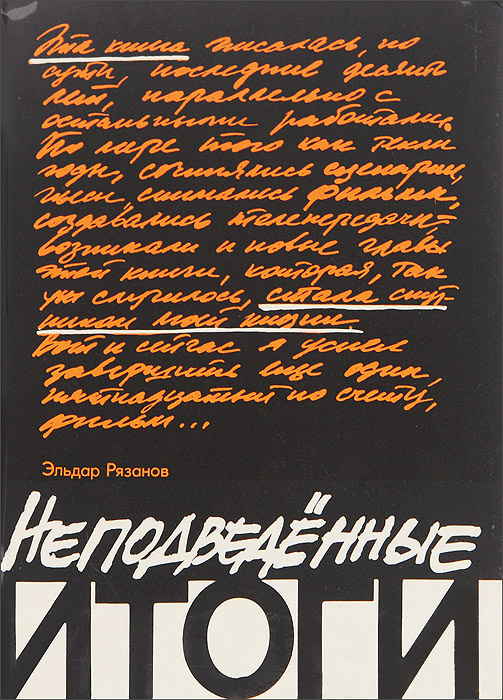 Эта книга писалась, по
сути, последние десять
лет, параллельно с
остальными работами.
По мере того как текли
годы, сочинялись сценарии,
пьесы, снимались фильмы,
создавались телепередачи –
возникали и новые главы
этой книги, которая, так
уж случилось, стала спут-
ником моей жизни.
Вот и сейчас я успел
завершить ещё один,
пятнадцатый по счёту,
фильм...
Эльдар Рязанов
Неподведённые
ИТОГИ